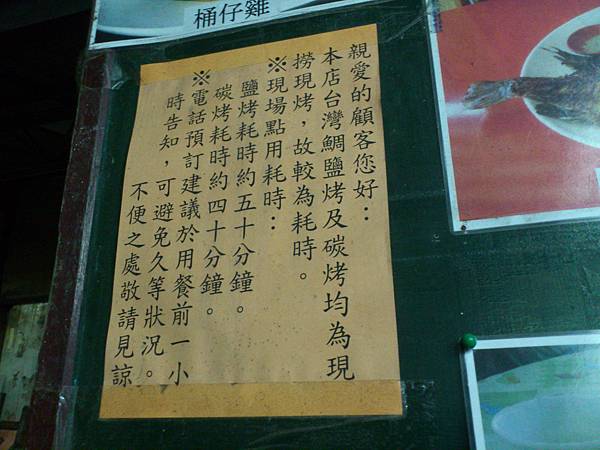 桶仔雞
親愛的顧客您好：
本店台灣鯛鹽烤及碳烤均為現
撈現烤，故較為耗時。
※現場點用耗時：
鹽烤耗時約五十分鐘。
碳烤耗時約四十分鐘。
※電話預訂建議於用餐前一小
時告知，可避免久等狀況。
不便之處敬請見諒